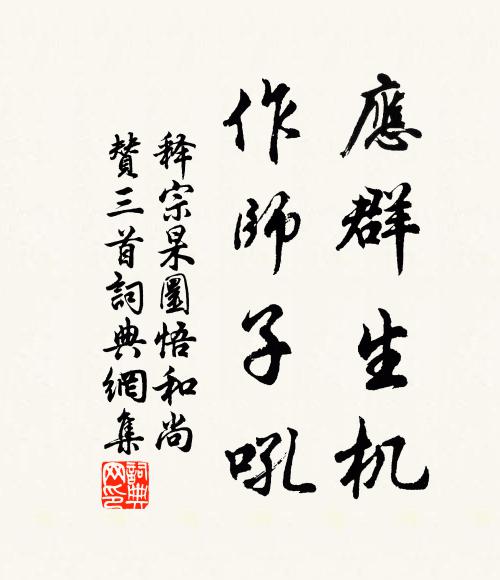 應群生机
作師子吼
释宗杲圜悟和尚
贊三首詞典網集
詞典网印